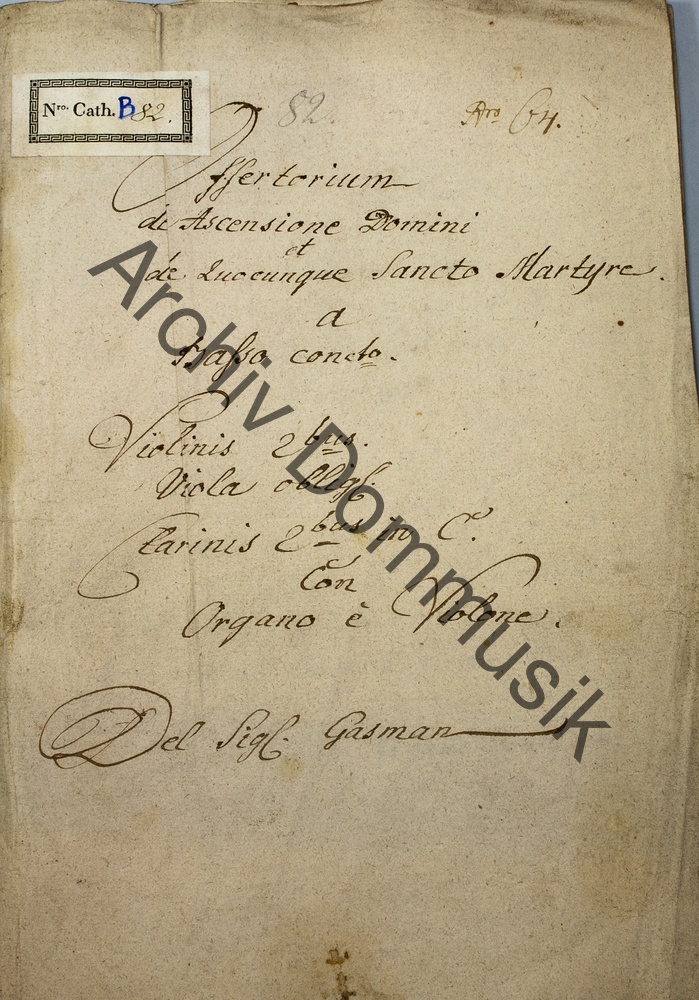 Nro. Cath. B 82.
82.
Nro 64.
Offertorium
de Ascensione Domini
et
de Quocunque Sancto Martyre.
a
Basso concto.
Violinis 2bus.
Viola obligt.
Clarinis 2bus in C.
Con
Organo è Violone.
Del Sigl. Gasman
Archiv Dommusik